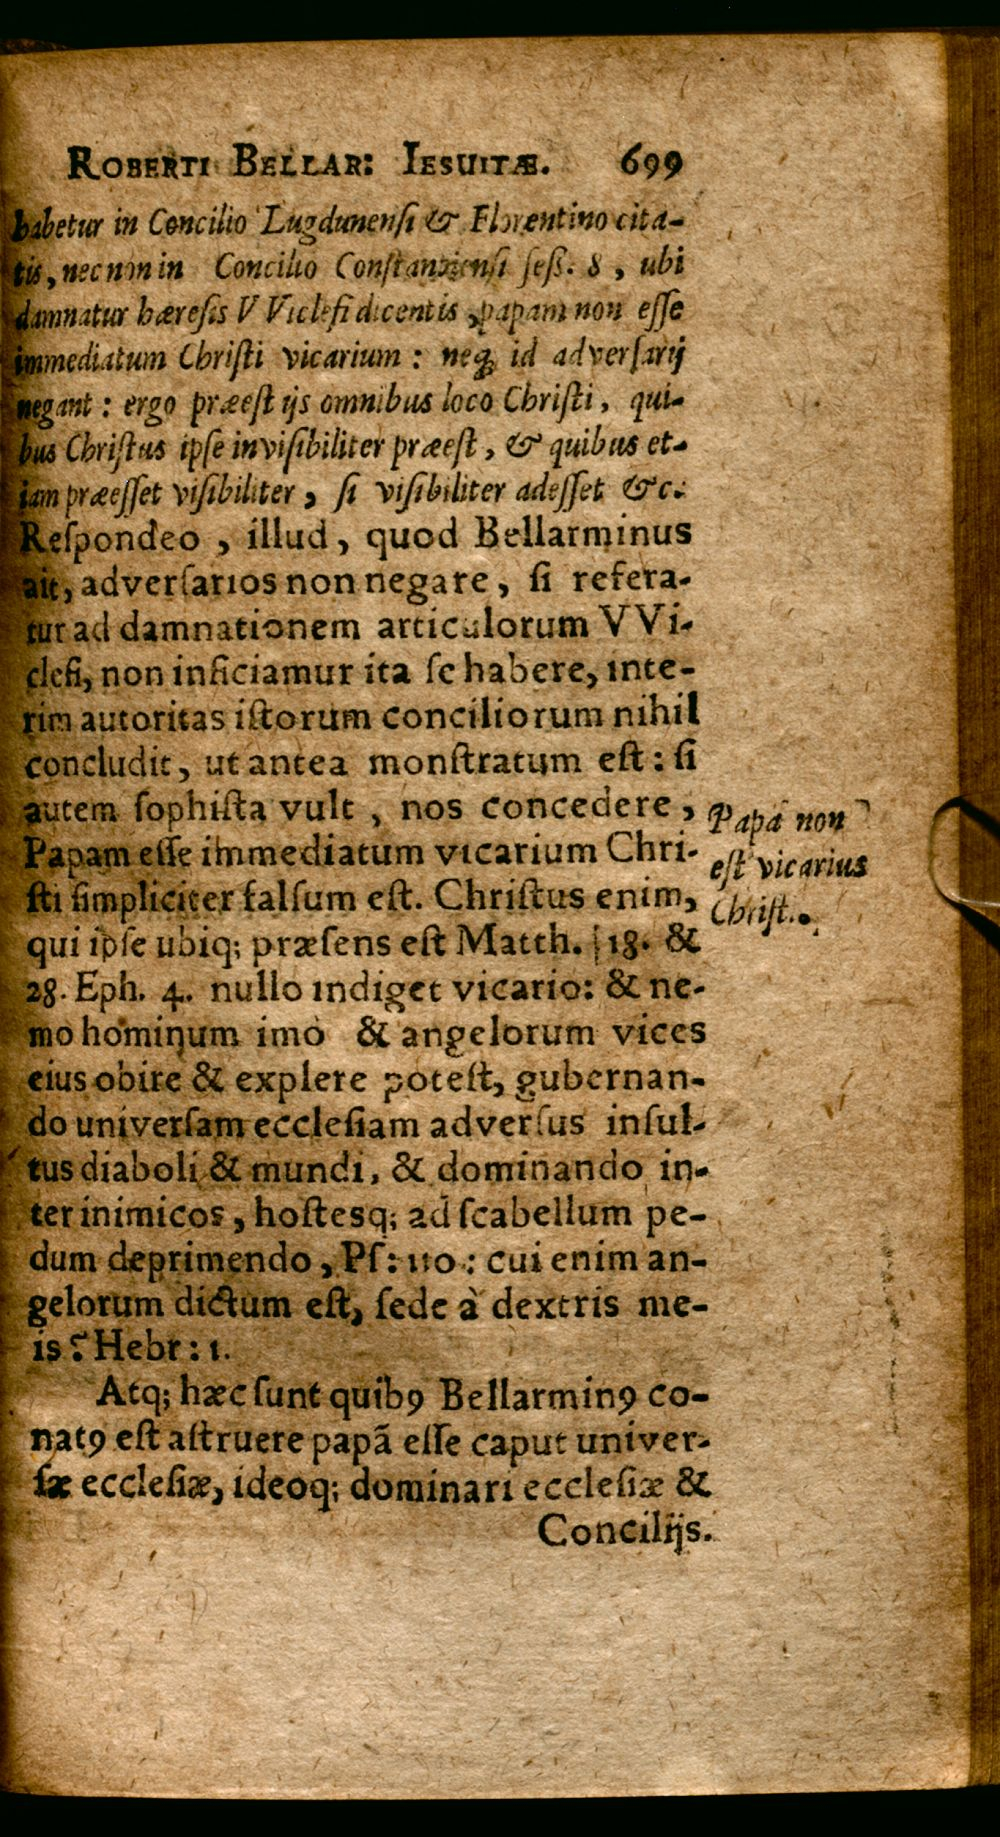 ROBERTI BELLAR: IESUITÆ. 699
habetur in Concilio Lugdunensi & Florentino cita-
tis, necnon in Concilio Constanziensi seß. 8, ubi
damnatur hæresis VViclefi dicentis, papam non esse
immediatum Christi vicarium: neq; id adversarij
negant: ergo præest ijs omnibus loco Christi, qui-
bus Christus ipse invisibiliter præest, & quibus et-
iam præesset visibiliter, si visibiliter adesset &c.
Respondeo, illud, quod Bellarminus
ait, adversarios non negare, si refera-
tur ad damnationem articulorum VVi-
clefi, non inficiamur ita se habere, inte-
rim autoritas istorum conciliorum nihil
concludit, ut antea monstratum est: si
autem sophista vult, nos concedere,
Papam esse immediatum vicarium Chri-
sti simpliciter falsum est. Christus enim,
qui ipse ubiq; præsens est Matth. 18. &
28. Eph. 4. nullo indiget vicario: & ne-
mo hominum imò & angelorum vices
eius obire & explere potest, gubernan-
do universam ecclesiam adversus insul-
tus diaboli & mundi, & dominando in-
ter inimicos, hostesq; ad scabellum pe-
dum deprimendo, Ps: 110: cui enim an-
gelorum dictum est, sede à dextris me-
is? Hebr: 1.
Atq; hæc sunt quibꝰ Bellarminꝰ co-
natꝰ est astruere papã esse caput univer-
sæ ecclesiæ, ideoq; dominari ecclesiæ &
Concilijs.
Papa non
est vicarius
Christ.